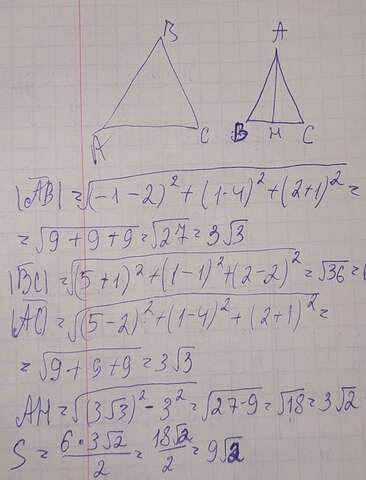 B
A C
A
B H C
|AB| = √((-1-2)² + (1-4)² + (2+1)²) =
= √(9+9+9) = √27 = 3√3
|BC| = √((5+1)² + (1-1)² + (2-2)²) = √36 =
|AC| = √((5-2)² + (1-4)² + (2+1)²) =
= √(9+9+9) = 3√3
AH = √((3√3)² - 3²) = √(27-9) = √18 = 3√2
S = (6·3√2)/2 = (18√2)/2 = 9√2